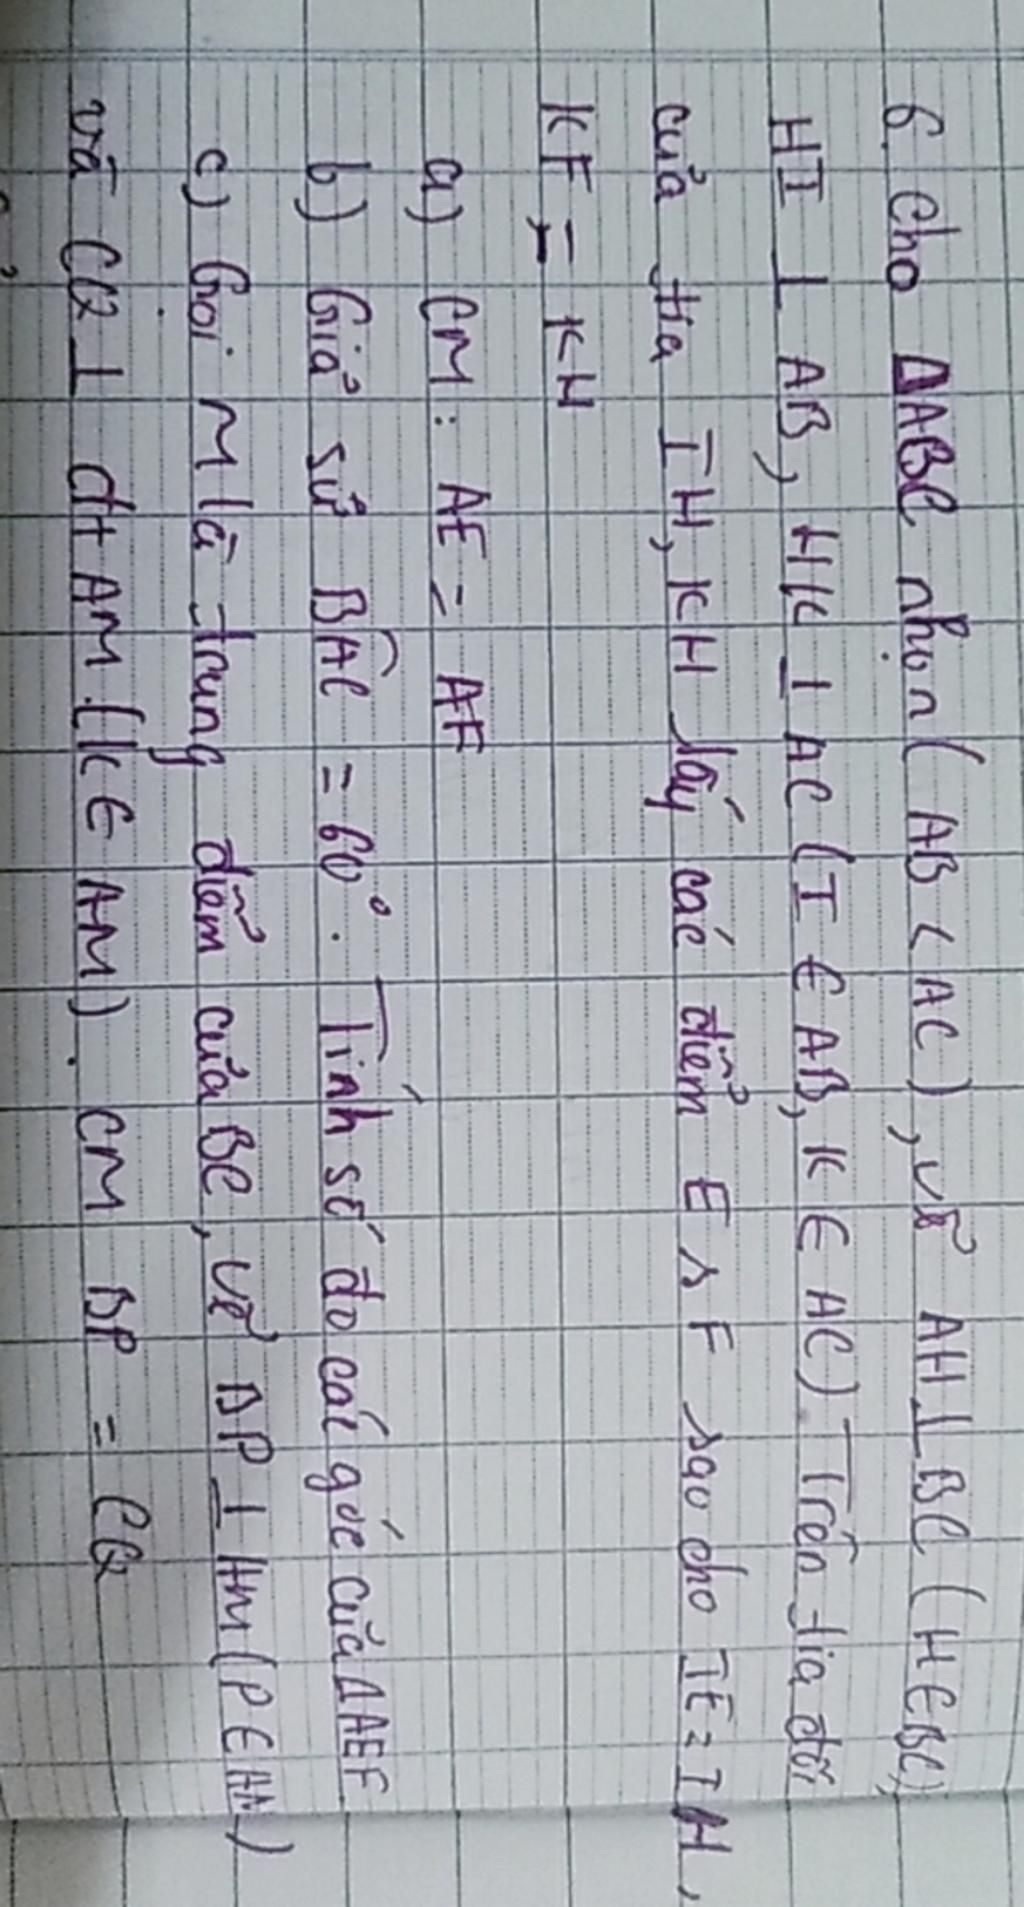 6. Cho ΔABC nhọn ( AB < AC ), vẽ AH ⊥ BC ( H ∈ BC)
HI ⊥ AB, HK ⊥ AC ( I ∈ AB, K ∈ AC) Trên tia đối
của tia IH, KH lấy các điểm E, F sao cho IE = IH,
KF = KH
a) CM: AE = AF
b) Giả sử BAC = 60°. Tính số đo các góc của ΔAEF
c) Gọi M là trung điểm của BC, vẽ BP ⊥ AM (P ∈ AM)
và CQ ⊥ đt AM. (K ∈ AM). CM BP = CQ